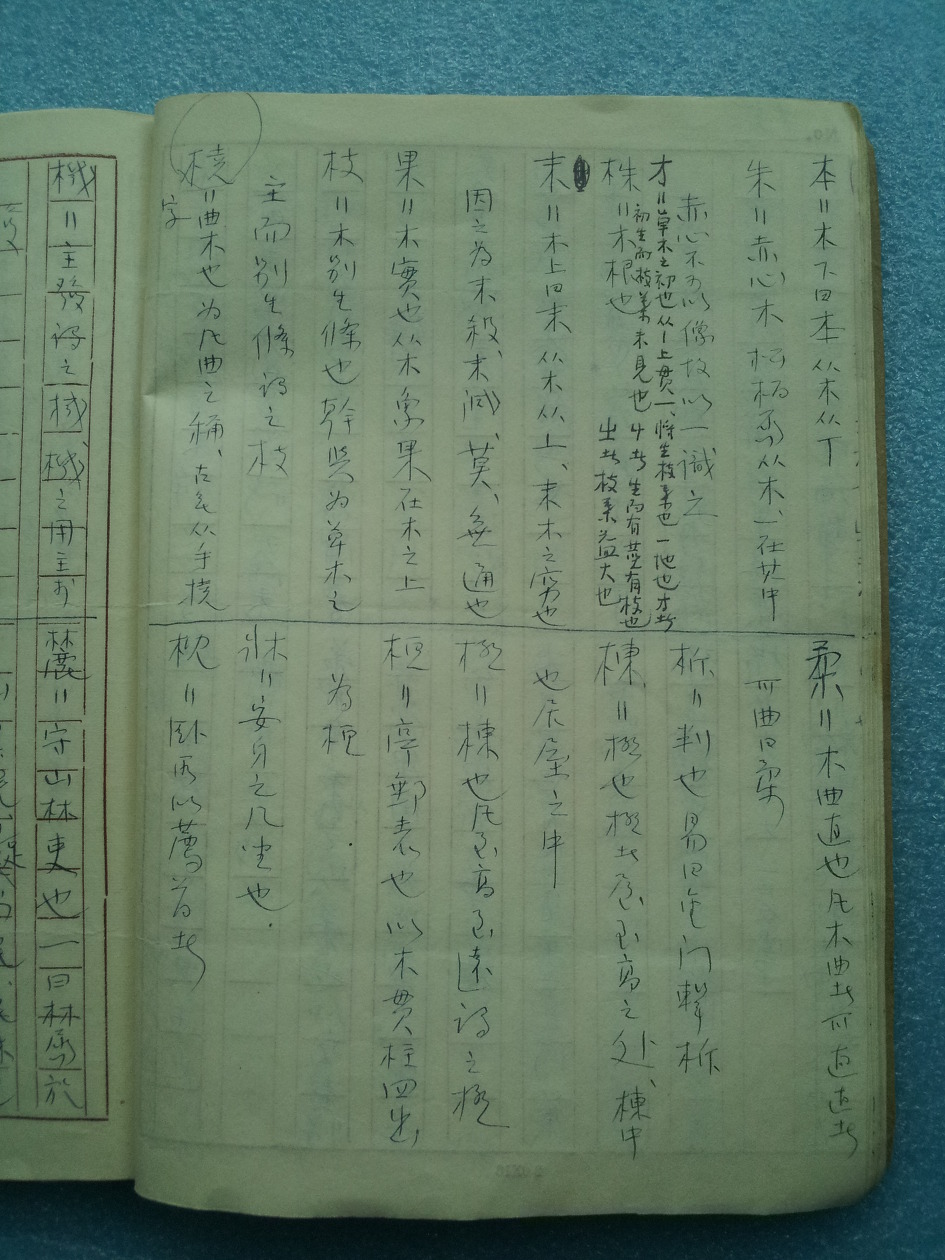 本=木下曰本从木从丅
朱=赤心木 松柏属从木、一在其中
赤心不可以像故以一識之
才=草木之初也从丨上貫一、將生枝葉也一地也才者
初生而枝葉未見也 屮者生而有莖有枝也
株=木根也
出者枝葉益大也
末=木上曰末从木从丄、末木之窮也
因之为末殺、末減、莫、無通也
果=木實也从木象果在木之上
枝=木别生條也幹與为草木之
主而别生條謂之枝
橈=曲木也为凡曲之稱、古多从手撓
字
柔=木曲直也凡木曲者可直直者
可曲曰柔
析=判也易曰金门
棟=極也極者屋至高之处、棟中
也居屋之中
極=棟也凡至高至遠謂之極
桓=亭郵表也以木貫柱四出
为桓
牀=安身之几坐也.
枕=卧所以薦首者
機=主發謂之機機之用主於
麓=守山林吏也一曰林属於